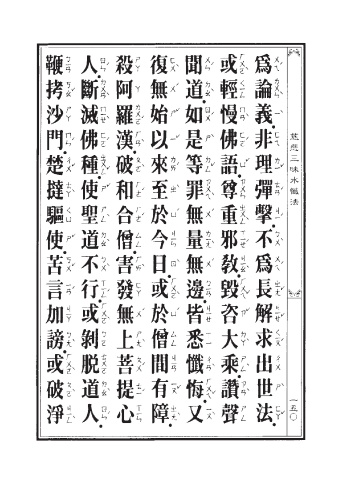 慈悲三昧水懺法
一五〇
為論義。非理彈擊。不為長解求出世法。
或輕慢佛語。尊重邪教。毀呰大乘。讚聲
聞道。如是等罪。無量無邊。皆悉懺悔。又
復無始以來。至於今日。或於僧間有障。
殺阿羅漢。破和合僧。害發無上菩提心
人。斷滅佛種。使聖道不行。或剝脫道人。
鞭拷沙門。楚撻驅使。苦言加謗。或破淨